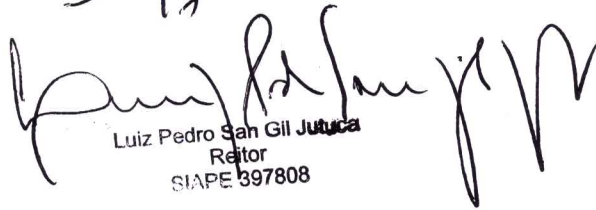 Luiz Pedro San Gil Jutuca
Reitor
SIAPE 397808